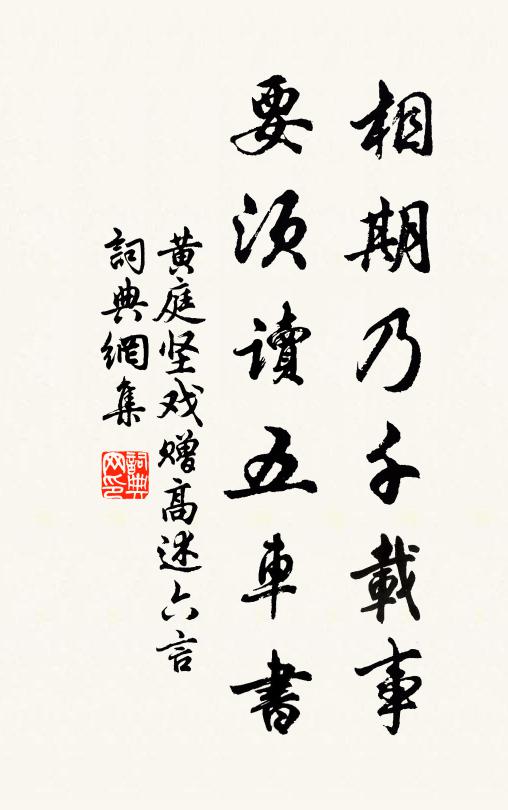 相期乃千載事
要須讀五車書
黄庭坚戏赠高述六言
詞典網集
詞典网印